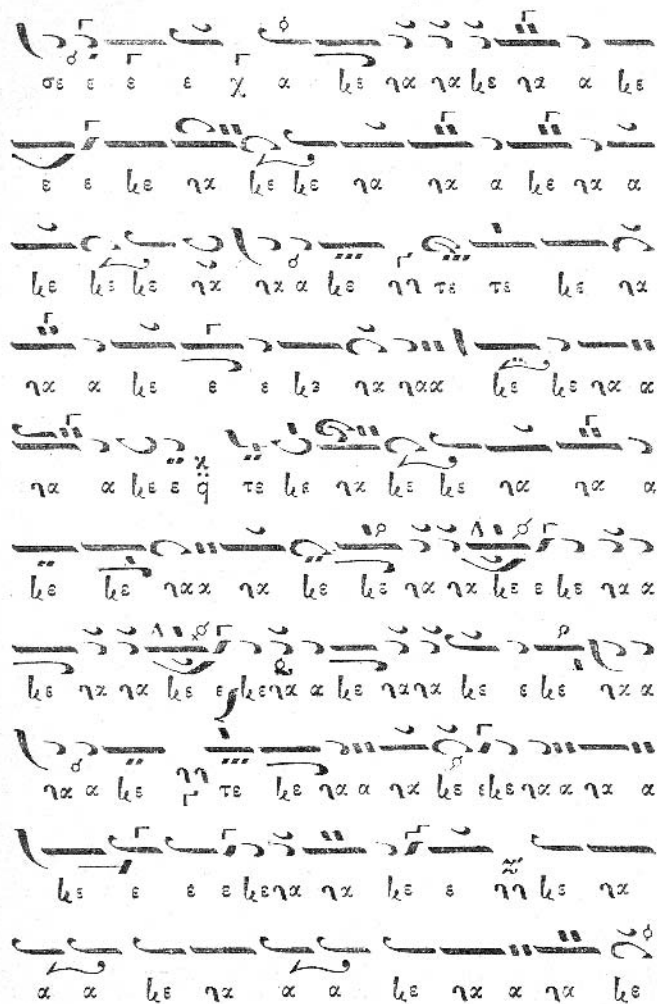 σε ε ε ε χ α κε να να κε να α κε
ε ε κε να κε κε να να α κε να α
κε κε κε να να α κε νη τε τε κε να
να α κε ε ε κε να ναα κε κε να α
να α κε ε χ q τε κε να κε κε να να α
κε κε ναα να κε κε να να κε ε κε να α
κε να να κε ε κε να α κε να να κε ε κε να α
να α κε νη τε κε να α να κε ε κε να α να α
κε ε ε ε κε να να κε ε νη κε να
α α κε να α α κε να α να κε